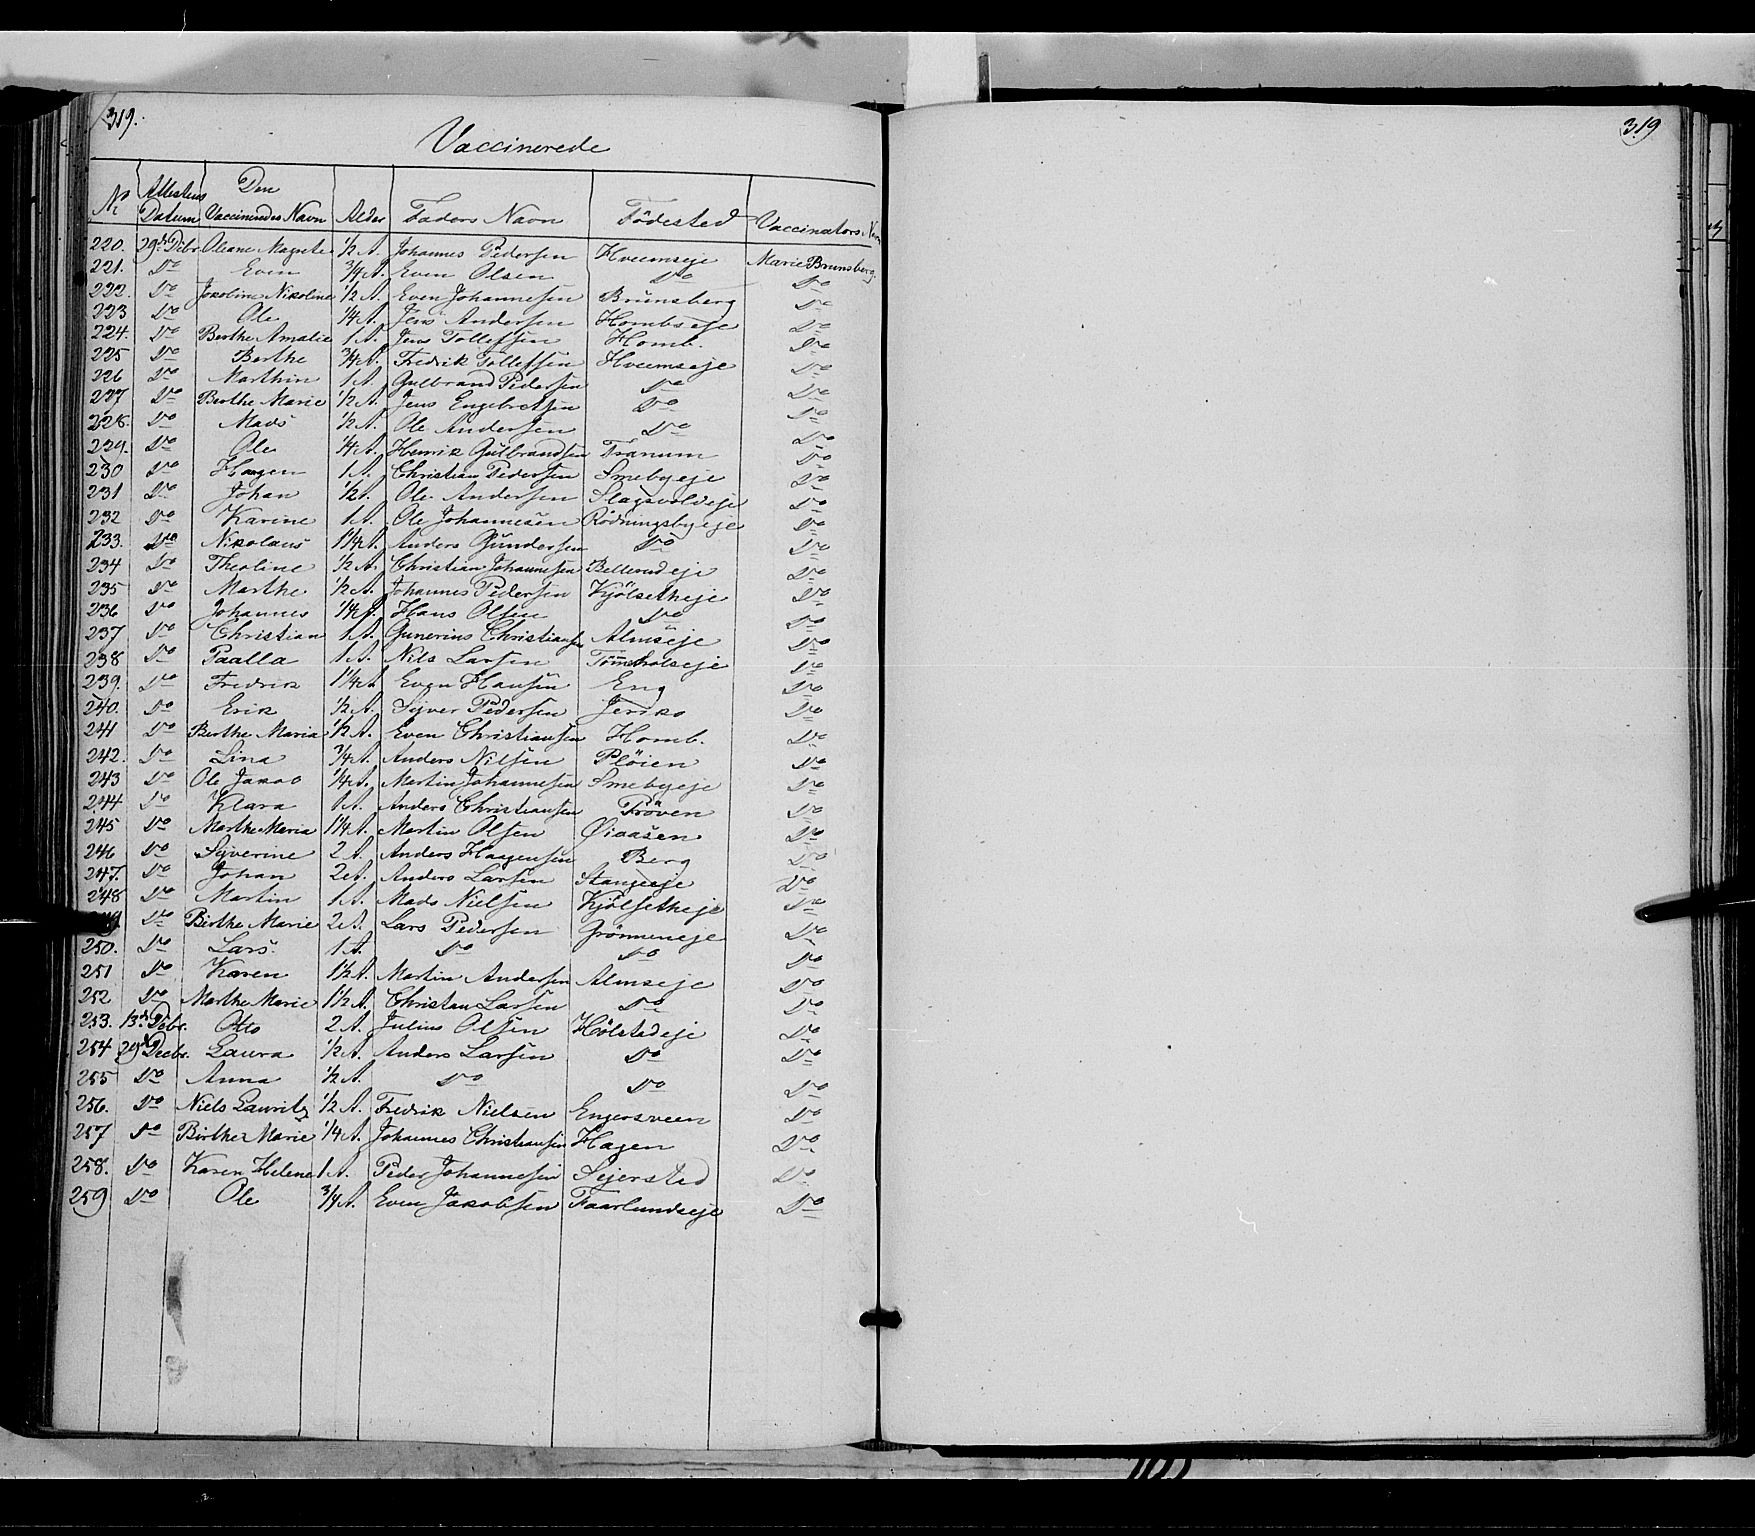 319.
Vaccinerede
No Attestens Datum Den Vaccineredes Navn Alder Faders Navn Födested Vaccinators Navn
220. 29de Debr. Oleane Magnete 1/2 A. Johannes Pedersen Hveemseje Marie Brunsberg.
221. Do Even 3/4 A. Even Olsen Do Do
222. Do Jokoline Nikoline 1/2 A. Even Johannesen Brunsberg Do
223 Do Ole 1/4 A. Jens Andersen Hombseje Do
224. Do Berthe Amalie 1 A. Jens Tollefsen Homb. Do
225 Do Berthe 3/4 A. Fredrik Tollefsen Hveemseje Do
226 Do Marthin 1 A. Gulbrand Pedersen Do Do
227 Do Berthe Marie 1/2 A. Jens Engebretsen Do Do
228. Do Mads 1/2 A. Ole Andersen Do Do
229. Do Ole 1/4 A. Henrik Gulbrandsen Tranum Do
230 Do Haagen 1 A. Christian Pedersen Smebyeje Do
231 Do Johan 1/2 A. Ole Andersen Slagsvoldeje Do
232 Do Karine 1 A. Ole Johannesen Rödningsbyeje Do
233. Do Nikolaus 1 1/4 A. Anders Gundersen Do Do
234 Do Theoline 1/2 A. Christian Johannesen Bellerudeje Do
235 Do Marthe 1/2 A. Johannes Pedersen Kjölsetheje Do
236 Do Johannes 1/4 A. Hans Olsen Do Do
237 Do Christian 1 A. Gunerius Christiansen Almseje Do
238 Do Paalla 1 A. Nils Larsen Tömtholseje Do
239. Do Fredrik 1 1/4 A Even Hansen Eng Do
240. Do Erik 1/2 A. Sijver Pedersen Jeriko Do
241 Do Berthe Maria 1/2 A. Even Christiansen Homb. Do
242. Do Lina 3/4 A. Anders Nilsen Plöien Do
243 Do Ole Jakob 1/4 A. Martin Johannesen Smebyeje Do
244 Do Klara 1 A. Anders Christiansen Pröven Do
245 Do Marthe Maria 1 1/4 A. Martin Olsen Øiaasen Do
246 Do Sijverine 2 A. Anders Haagensen Berg Do
247. Do Johan 2 A. Anders Larsen Stangeeje Do
248 Do Martin 1 A. Mads Nielsen Kjölsetheje Do
249 Do Birthe Marie 2 A. Lars Pedersen Grönneneje Do
250. Do Lars. 1 A. Do Do Do
251 Do Karen 1 1/2 A. Martin Andersen Almseje Do
252 Do Marthe Marie 1 1/2 A. Christian Larsen Do Do
253. 13de Debr. Otto 2 A. Julius Olsen Hölstadeje Do
254 29de Decbr. Laura 1/2 A. Anders Larsen Do Do
255 Do Anna 1/2 A. Do Do Do
256. Do Niels Lauritz 1/2 A. Fredrik Nielsen Engersveen Do
257 Do Birthe Marie 1/4 A. Johannes Christiansen Hagen Do
258. Do Karen Helene 1 A. Peder Johannesen Sejersted Do
259 Do Ole 3/4 A. Even Jakobsen Faarlundseje Do
319